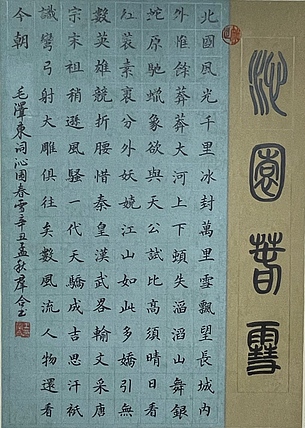 沁園春雪
北國風光千里冰封萬里雪飄望長城內
外惟餘莽莽大河上下頓失滔滔山舞銀
蛇原馳蠟象欲與天公試比高須晴日看
紅裝素裹分外妖嬈江山如此多嬌引無
數英雄競折腰惜秦皇漢武畧輸文采唐
宗宋祖稍遜風騷一代天驕成吉思汗祇
識彎弓射大雕俱往矣數風流人物還看
今朝
毛澤東词沁园春雪辛丑孟秋